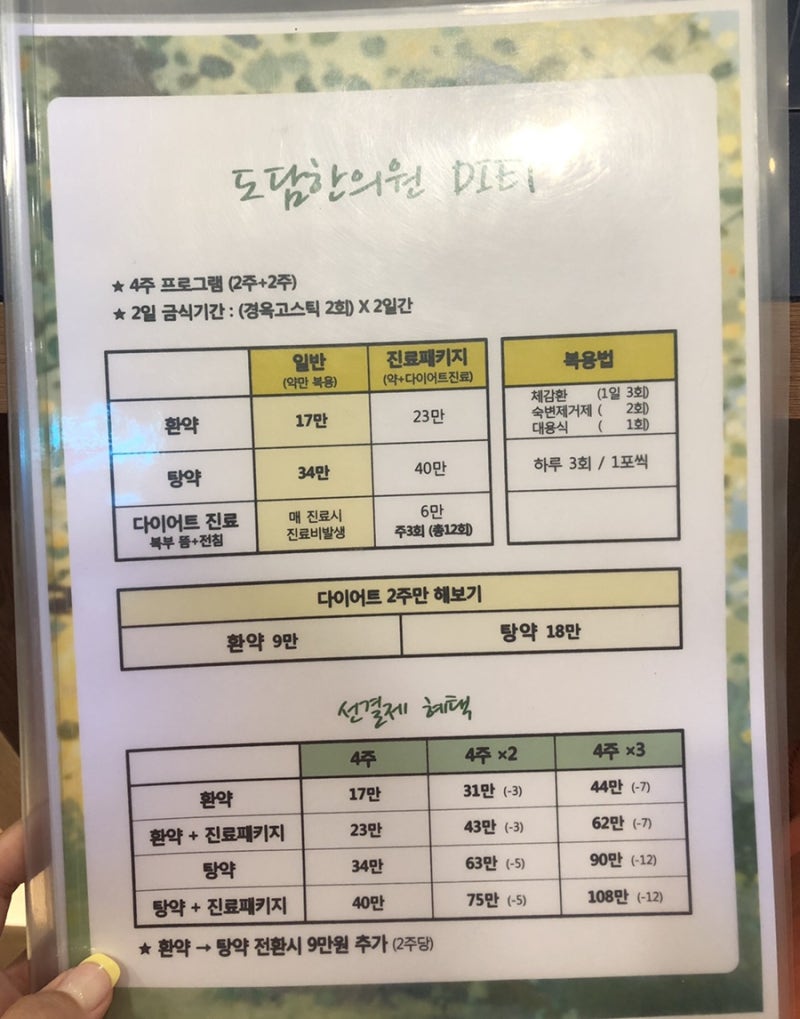 도담한의원 DIET
★ 4주 프로그램 (2주+2주)
★ 2일 금식기간 : (경옥고스틱 2회) X 2일간
일반 진료패키지
(약만 복용) (약+다이어트진료)
환약 17만 23만
탕약 34만 40만
다이어트 진료 매 진료시 6만
복부 뜸+전침 진료비발생 주3회 (총12회)
복용법
체감환 (1일 3회)
숙변제거제 ( 2회)
대용식 ( 1회)
하루 3회 / 1포씩
다이어트 2주만 해보기
환약 9만 탕약 18만
선결제 혜택
4주 4주 ×2 4주 ×3
환약 17만 31만 (-3) 44만 (-7)
환약 + 진료패키지 23만 43만 (-3) 62만 (-7)
탕약 34만 63만 (-5) 90만 (-12)
탕약 + 진료패키지 40만 75만 (-5) 108만 (-12)
★ 환약 → 탕약 전환시 9만원 추가 (2주당)